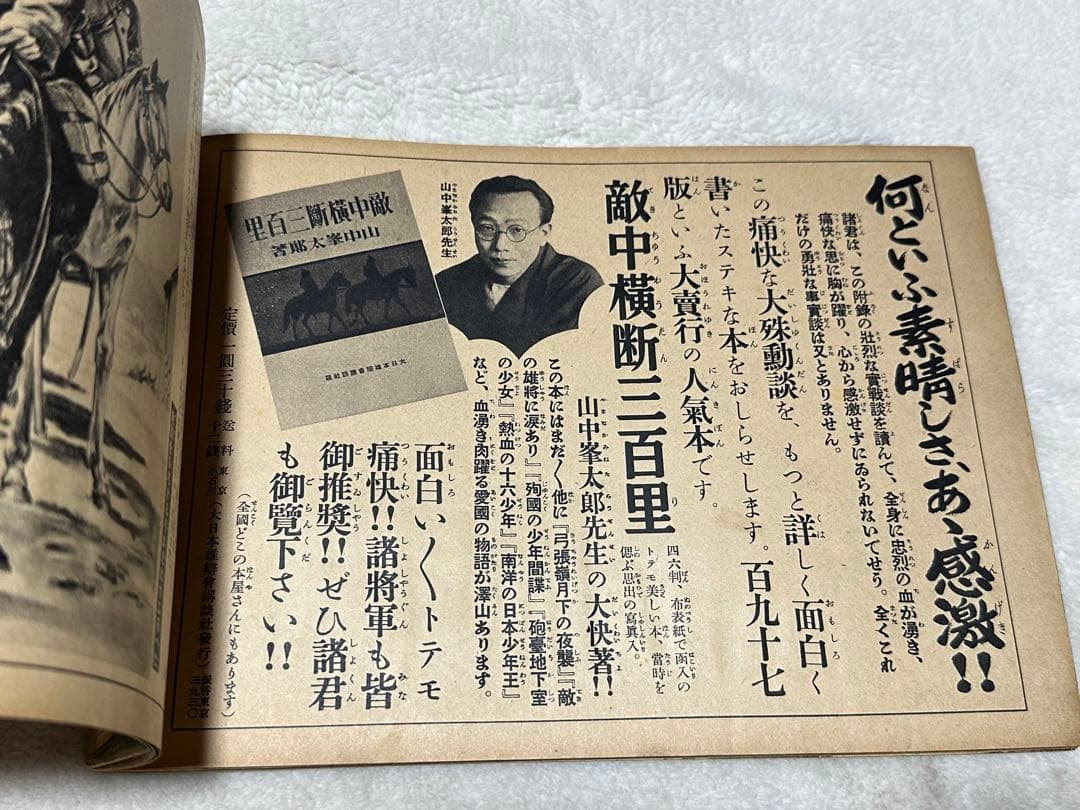 何といふ素晴しさ、あゝ感激!!
諸君は、この附錄の壯烈な實戰談を讀んで、全身に忠烈の血が湧き、
痛快な思に胸が躍り、心から感激せずにゐられないでせう。全くこれ
だけの勇壯な事實談は又とありません。
この痛快な大殊勳談を、もつと詳しく面白く
書いたステキな本をおしらせします。百九十七
版といふ大賣行の人氣本です。
敵中橫斷三百里
四六判 布表紙で函入の
トテモ美しい本、當時を
偲ぶ思出の寫眞入。
山中峯太郎先生の大快著!!
この本にはまだ〱他に『弓張嶺月下の夜襲』『敵
の雄將に淚あり』『殉國の少年間諜』『砲臺地下室
の少女』『熱血の十六少年』『南洋の日本少年王』
など、血湧き肉躍る愛國の物語が澤山あります。
山中峯太郎先生
敵中橫斷三百里
山中峯太郎著
大日本雄辯會講談社版
面白い〱トテモ
痛快!!諸將軍も皆
御推奬!!ぜひ諸君
も御覽下さい!!
(全國どこの本屋さんにもあります)
定價一圓三十錢 送料十二錢 東京小石川(大日本雄辯會講談社發行)振替東京三九三〇